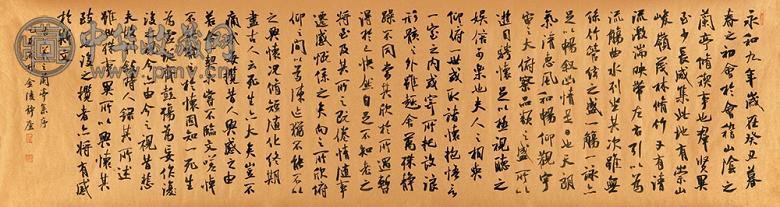 永和九年歲在癸丑暮
春之初會於會稽山陰之
蘭亭脩稧事也羣賢畢
至少長咸集此地有崇山
峻嶺茂林脩竹又有清
流激湍映帶左右引以為
流觴曲水列坐其次雖無
絲竹管絃之盛一觴一詠亦
足以暢敘幽情是日也天朗
氣清惠風和暢仰觀宇
宙之大俯察品類之盛所以
遊目騁懷足以極視聽之
娛信可樂也夫人之相與
俯仰一世或取諸懷抱悟言
一室之內或寄所託放浪
形骸之外雖趣舍萬殊靜
躁不同當其欣於所遇暫
得於己快然自足不知老之
將至及其所之既倦情隨事
遷感慨係之矣向之所欣俯
仰之間以為陳迹猶不能不以
之興懷況脩短隨化終期
於盡古人云死生亦大矣豈不
痛哉每攬昔人興感之由
若合一契未嘗不臨文嗟悼
不能喻之於懷固知一死生
為虛誕齊彭殤為妄作後
之視今亦由今之視昔悲
夫故列敘時人錄其所述
雖世殊事異所以興懷其
致一也後之攬者亦將有感
於斯文
蘭亭集序
中华收藏网